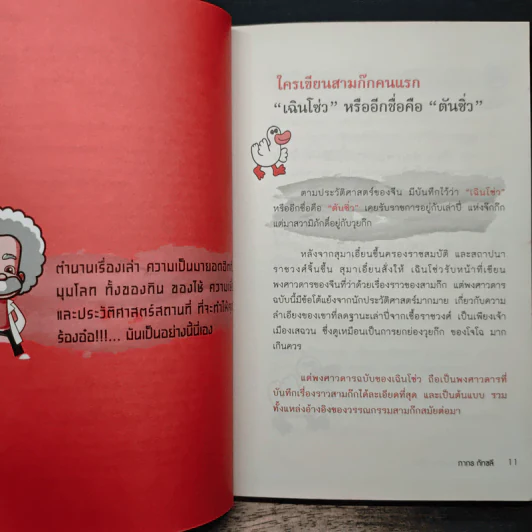 ตำนานเรื่องเล่า ความเป็นมายอดฮิต
มุมโลก ทั้งของกิน ของใช้
และประวัติศาสตร์สถานที่ ที่จะทำให้
ร้องอ๋อ!!!... มันเป็นอย่างนี้นี่เอง
ใครเขียนสามก๊กคนแรก
“เฉินโซ่ว” หรืออีกชื่อคือ “ตันซิ่ว”
ตามประวัติศาสตร์ของจีน มีบันทึกไว้ว่า “เฉินโซ่ว”
หรืออีกชื่อคือ “ตันซิ่ว” เคยรับราชการอยู่กับเล่าปี่ แห่งจ๊กก๊ก
แต่มาสวามิภักดิ์อยู่กับวุยก๊ก
หลังจากสุมาเอี๋ยนขึ้นครองราชสมบัติ และสถาปนา
ราชวงศ์จิ้นขึ้น สุมาเอี๋ยนสั่งให้ เฉินโซ่วรับหน้าที่เขียน
พงศาวดารของจีนที่ว่าด้วยเรื่องราวของสามก๊ก แต่พงศาวดาร
ฉบับนี้มีข้อโต้แย้งจากนักประวัติศาสตร์มากมาย เกี่ยวกับความ
ลำเอียงของเขาที่ลดฐานะเล่าปี่จากเชื้อราชวงศ์ เป็นเพียงเจ้า
เมืองเสฉวน ซึ่งดูเหมือนเป็นการยกย่องวุยก๊ก ของโจโฉ มาก
เกินควร
แต่พงศาวดารฉบับของเฉินโซ่ว ถือเป็นพงศาวดารที่
บันทึกเรื่องราวสามก๊กได้ละเอียดที่สุด และเป็นต้นแบบ รวม
ทั้งแหล่งอ้างอิงของวรรณกรรมสามก๊กสมัยต่อมา
11